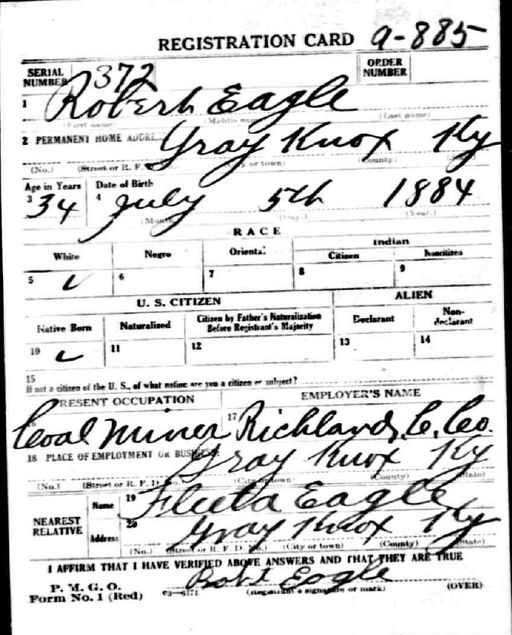 REGISTRATION CARD 9-885
SERIAL NUMBER 372 ORDER NUMBER
1 Robert Eagle
(First name) (Middle name) (Last name)
2 PERMANENT HOME ADDRE Gray Knox Ky
(No.) (Street or R. F. D. or town) (County)
Age in Years Date of Birth
3 34 4 July 5th 1884
(Month) (Day.) (Year.)
RACE
White Negro Oriental Indian
Citizen Noncitizen
5 ✓ 6 7 8 9
U. S. CITIZEN ALIEN
Native Born Naturalized Citizen by Father's Naturalization Before Registrant's Majority Declarant Non-declarant
10 ✓ 11 12 13 14
15
If not a citizen of the U. S., of what nation are you a citizen or subject?
PRESENT OCCUPATION EMPLOYER'S NAME
Coal Miner 17 Richland C. Co.
18 PLACE OF EMPLOYMENT OR BUSINESS: Gray Knox Ky
(No.) (Street or R. F. D. No.) (City or town) (County) (State)
NEAREST RELATIVE
Name 19 Fleeta Eagle
Address 20 Gray Knox Ky
(No.) (Street or R. F. D. No.) (City or town) (County) (State)
I AFFIRM THAT I HAVE VERIFIED ABOVE ANSWERS AND THAT THEY ARE TRUE
P. M. G. O.
Form No. 1 (Red) 03-6171 Robt Eagle
(Registrant's signature or mark) (OVER)